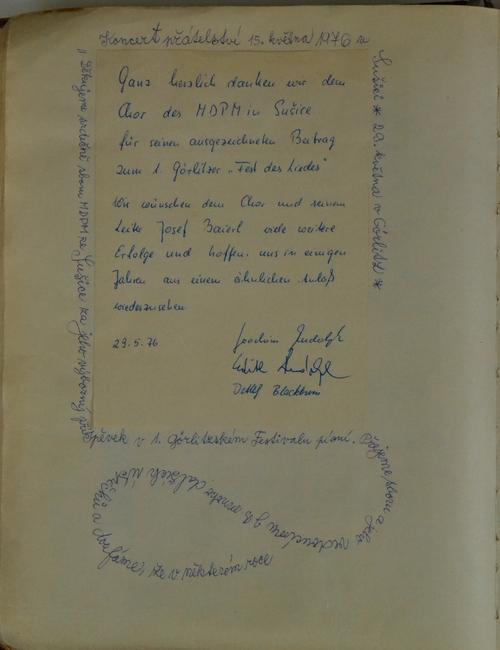 Koncert přátelství 15. května 1976 v
Sušici * 29. května v Görlitz *
Ganz herzlich danken wir dem
Chor des MDPM in Sušice
für seinen ausgezeichneten Beitrag
zum 1. Görlitzer "Fest des Liedes"
Wir wünschen dem Chor und seinem
Leiter Josef Baierl viele weitere
Erfolge und hoffen, uns in einigen
Jahren aus einem ähnlichen Anlaß
wiederzusehen
29.5.76
Joachim Rudolph
Detlef
Děkujeme srdečně sboru MDPM ze Sušice za jeho výborný pří-
spěvek v 1. görlitzském Festivalu písní. Přejeme sboru a jeho
vedoucímu
dalších
a doufáme, že v některém roce